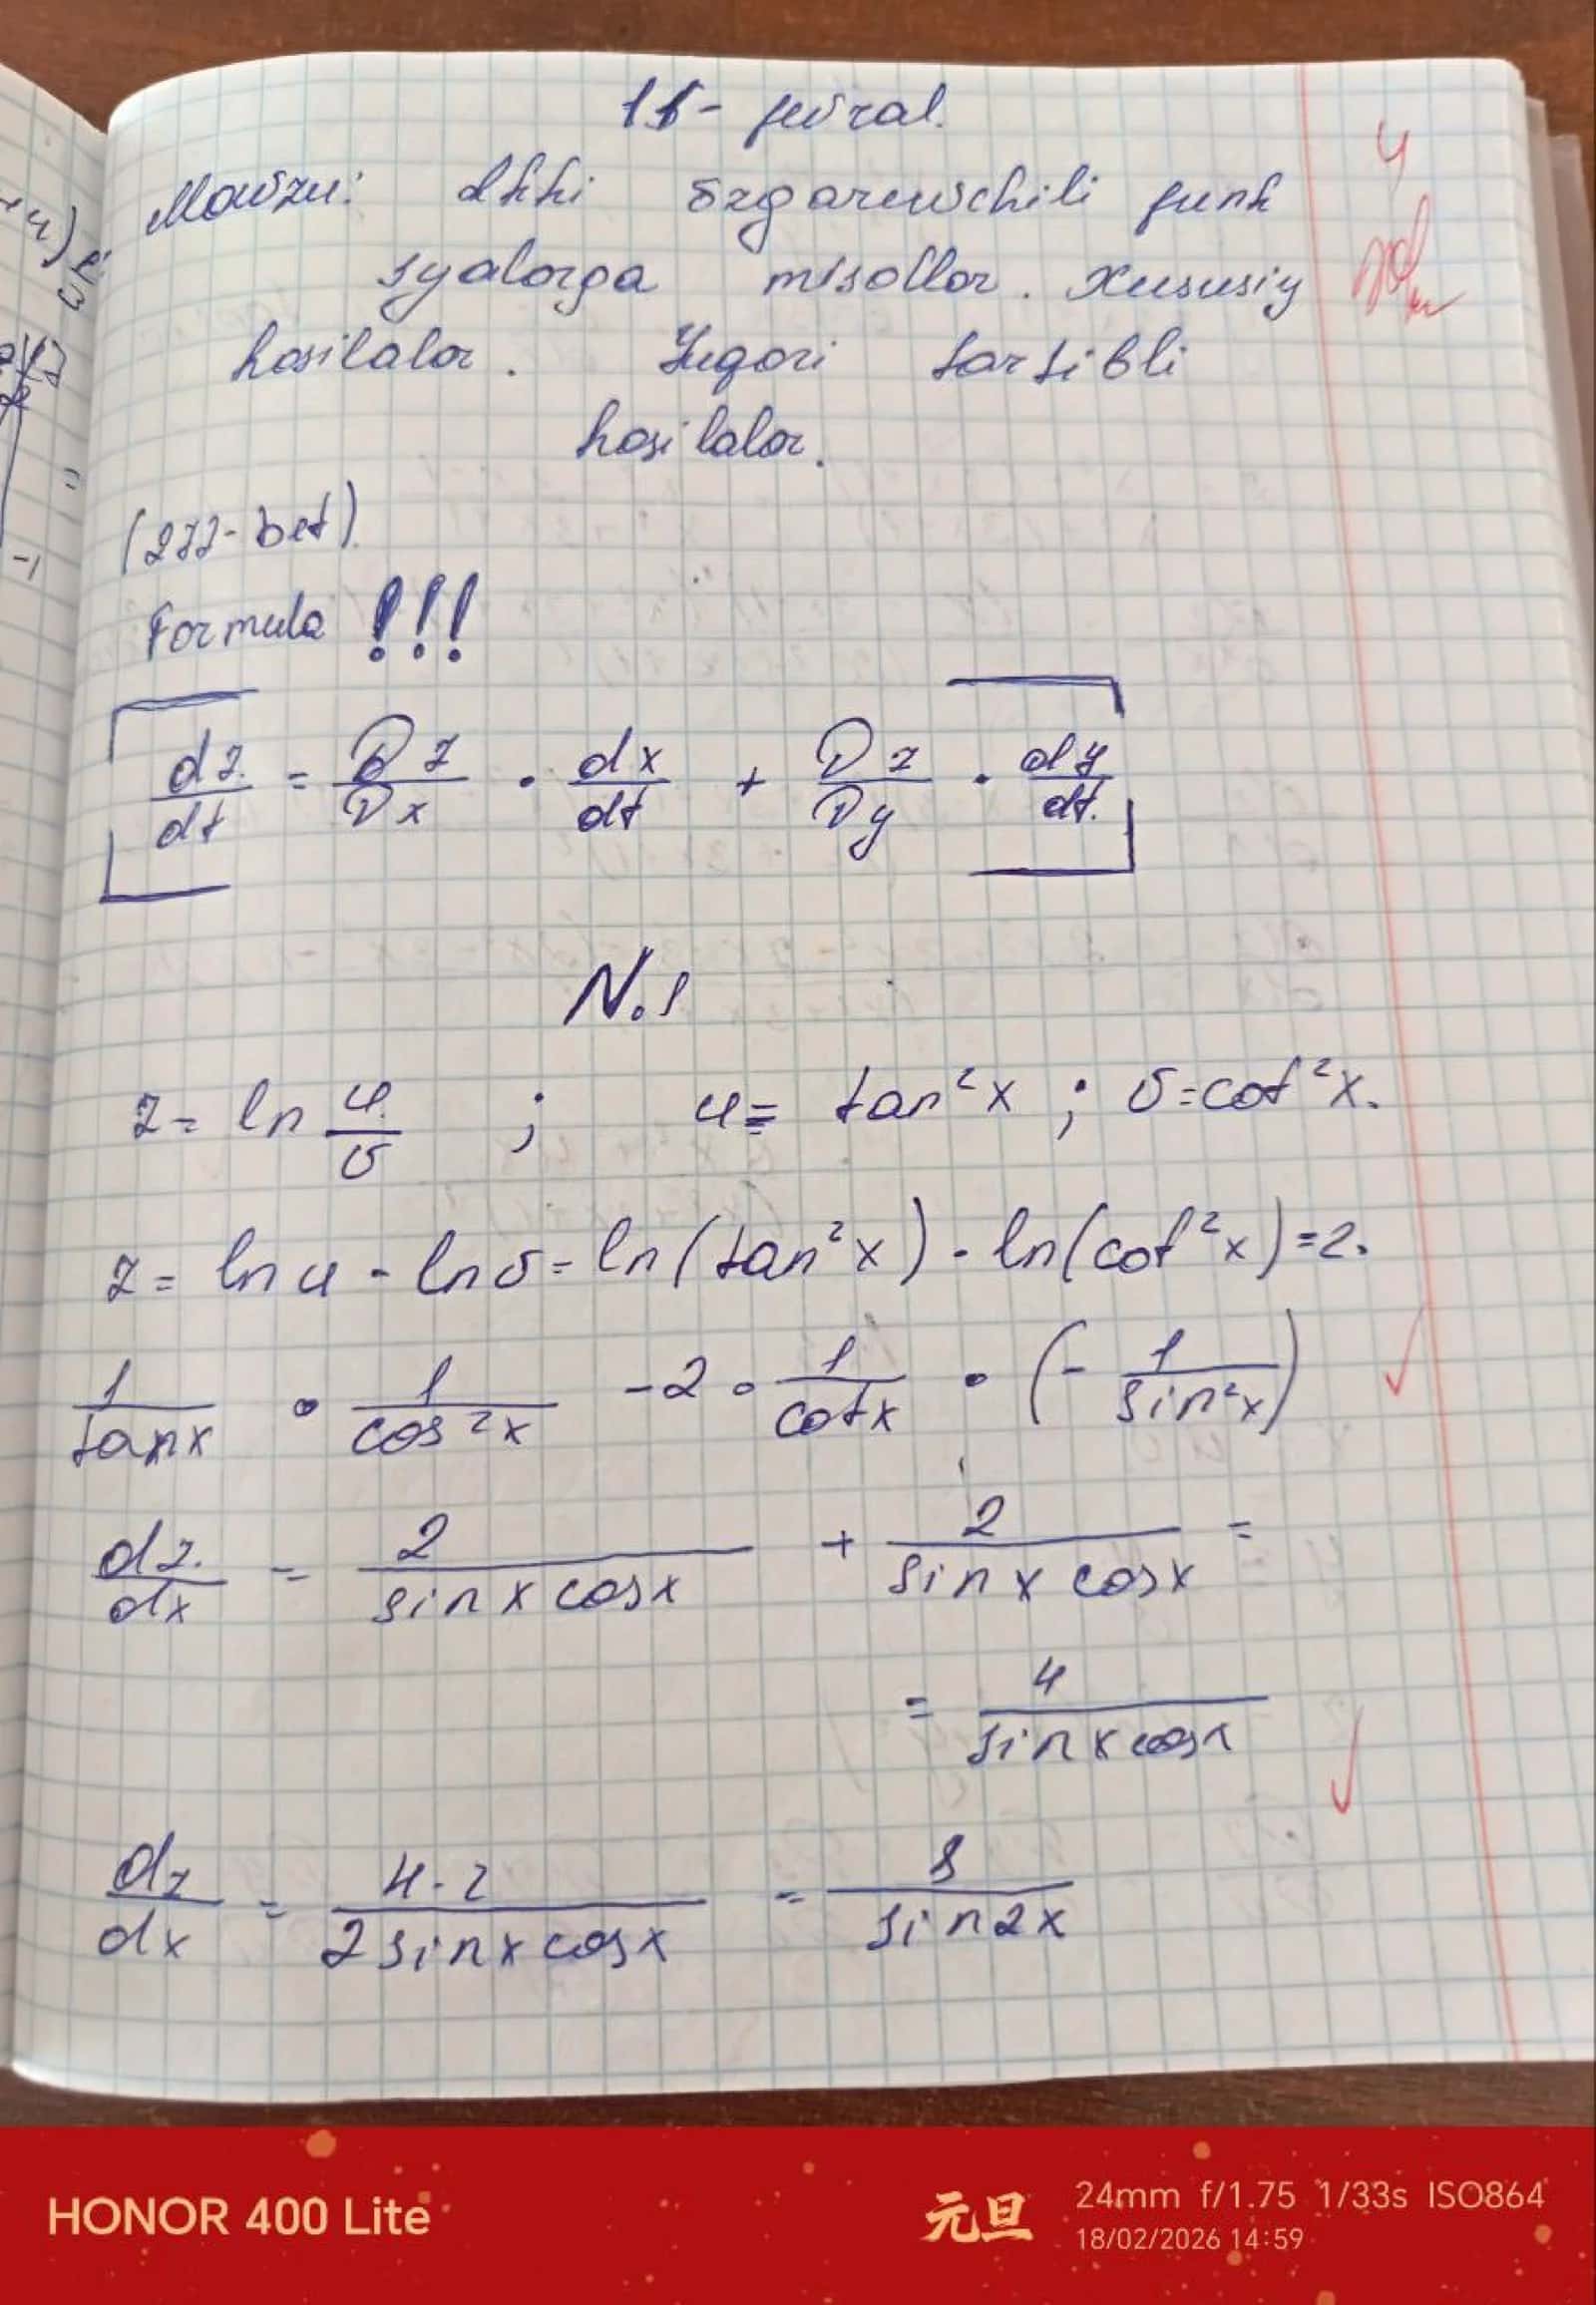 11- fevral.
4
Mavzu: Ikki özgaruvchili funk
syalarga misollar. Xususiy
hosilalar. Yuqori tartibli
hosilalar.
(277-bet)
Formula !!!
dz/dt = Dz/Dx · dx/dt + Dz/Dy · dy/dt.
N.1
z = ln u/v ; u = tan²x ; v = cot²x.
z = ln u - ln v = ln(tan²x) - ln(cot²x) = 2·
1/tanx · 1/cos²x - 2 · 1/cotx · (- 1/sin²x)
dz/dx = 2/sinx cosx + 2/sinx cosx =
= 4/sinx cosx
dz/dx = 4·2/2sinx cosx = 8/sin2x
HONOR 400 Lite
元旦
24mm f/1.75 1/33s ISO864
18/02/2026 14:59